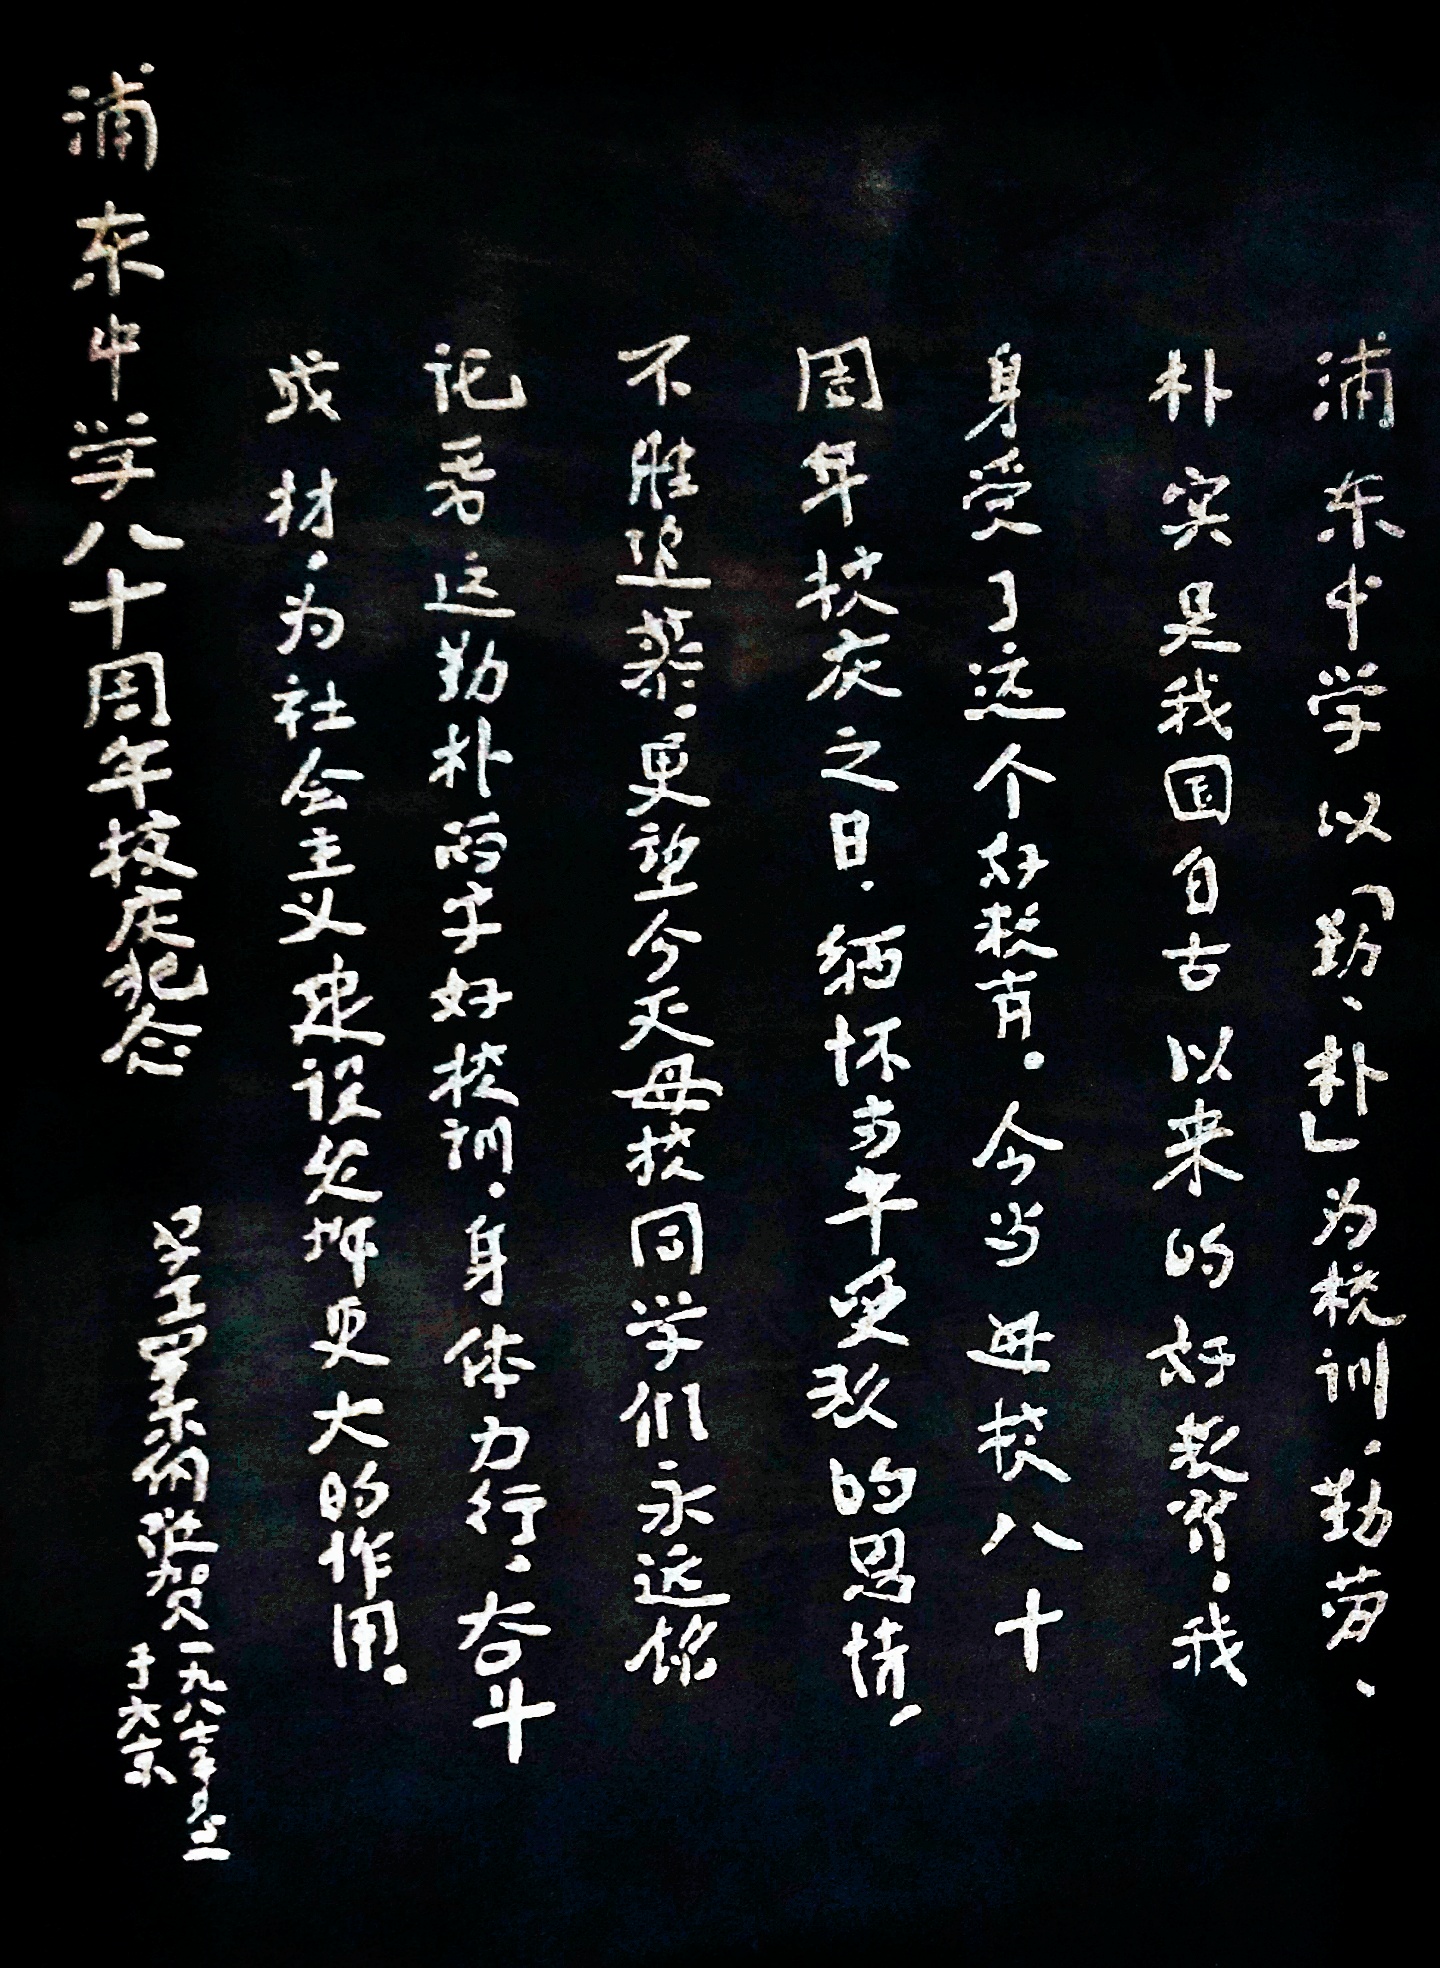 浦东中学以「勤、朴」为校训，勤劳、
朴实是我国自古以来的好教养，我
身受了这个好教育。今当母校八十
周年校庆之日，缅怀当年受教的恩情，
不胜追慕，更望今天母校同学们永远铭
记着这勤朴两字好校训，身体力行，奋斗
成材，为社会主义建设发挥更大的作用。
浦东中学八十周年校庆纪念
学生罗尔纲敬贺
一九八七年
于北京